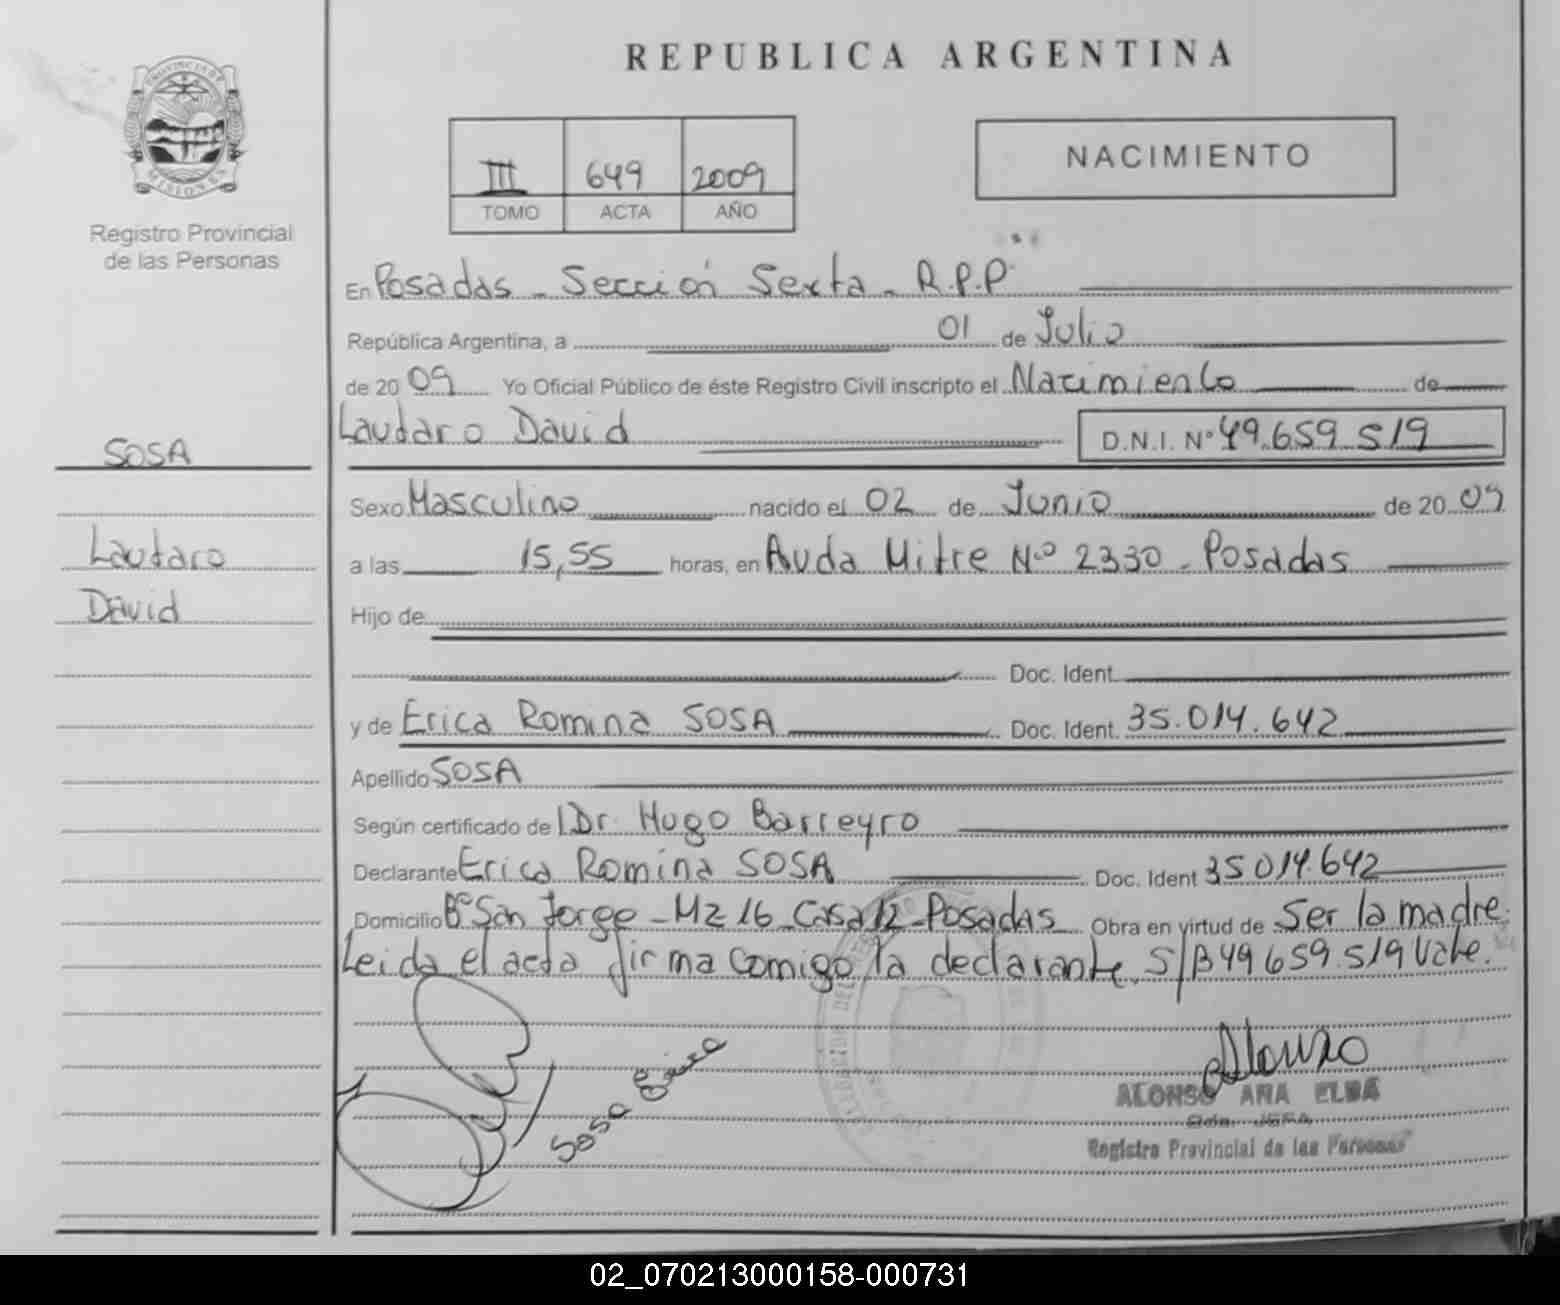 REPUBLICA ARGENTINA
PROVINCIA DE
MISIONES
Registro Provincial
de las Personas
III 649 2009
TOMO ACTA AÑO
NACIMIENTO
En Posadas - Sección Sexta - R.P.P
República Argentina, a 01 de Julio
de 20 09 Yo Oficial Público de éste Registro Civil inscripto el Nacimiento de
Lautaro David D.N.I. Nº 49.659.519
SOSA
Lautaro
David
Sexo Masculino nacido el 02 de Junio de 20 09
a las 15,55 horas, en Avda Mitre Nº 2330 - Posadas
Hijo de
Doc. Ident.
y de Erica Romina SOSA Doc. Ident. 35.014.642
Apellido SOSA
Según certificado de Dr. Hugo Barreyro
Declarante Erica Romina SOSA Doc. Ident 35.014.642
Domicilio Bº San Jorge - Mz 16 - Casa 12 - Posadas Obra en virtud de Ser la madre.
Leida el acta firma comigo la declarante. S/B 49.659.519 Vale.
Sosa Erica
Alonso
ALONSO ANA ELBA
JEFA
Registro Provincial de las Personas
02_070213000158-000731